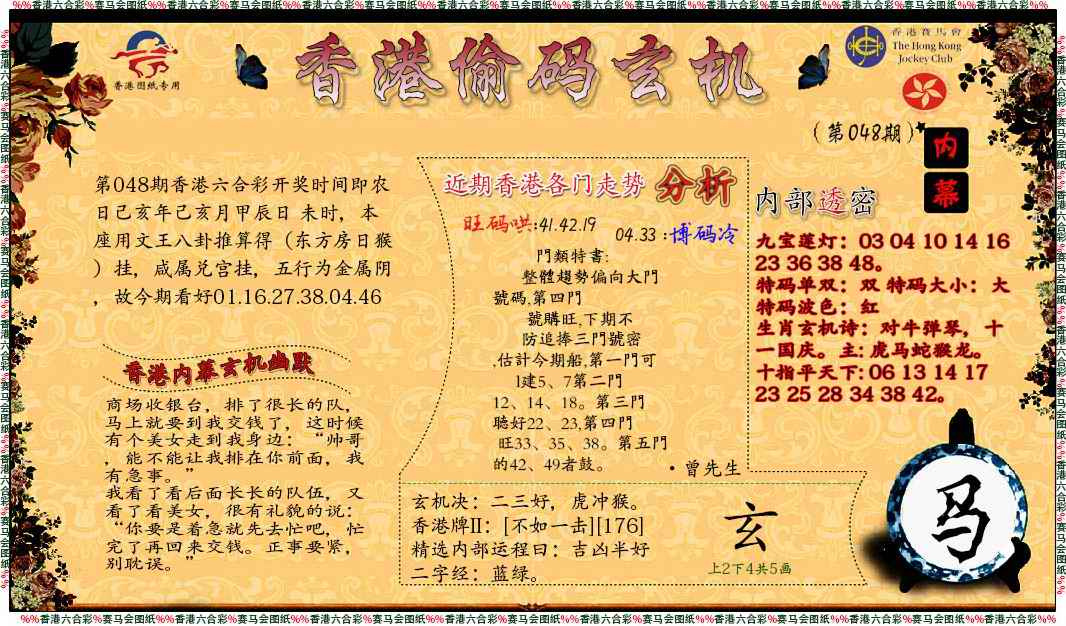 %%香港六合彩%赛马会图纸%%香港六合彩%赛马会图纸%%香港六合彩%赛马会图纸%%香港六合彩%赛马会图纸%%香港六合彩%赛马会图纸%%香港六合彩%赛马会图纸%%香港六合彩%赛马会图纸%%
香港图纸专用
香港偷码玄机
香港賽馬會
The Hong Kong
Jockey Club
（第048期）
内
幕
第048期香港六合彩开奖时间即农
日己亥年己亥月甲辰日 未时，本
座用文王八卦推算得（东方房日猴
）挂，咸属兑宫挂，五行为金属阴
，故今期看好01.16.27.38.04.46
香港内幕玄机幽默
商场收银台，排了很长的队，
马上就要到我交钱了，这时候
有个美女走到我身边：“帅哥
，能不能让我排在你前面，我
有急事。”
我看了看后面长长的队伍，又
看了看美女，很有礼貌的说：
“你要是着急就先去忙吧，忙
完了再回来交钱。正事要紧，
别耽误。”
近期香港各门走势 分析
旺码哄:41.42.19
04.33 :博码冷
門類特書:
整體趨勢偏向大門
號碼,第四門
號購旺,下期不
防追捧三門號密
,估計今期船,第一門可
1建5、7第二門
12、14、18。第三門
聽好22、23,第四門
旺33、35、38。第五門
的42、49者鼓。
·曾先生
玄机决：二三好，虎冲猴。
香港牌II：[不如一击][176]
精选内部运程曰：吉凶半好
二字经：蓝绿。
玄
上2下4共5画
内部透密
九宝莲灯：03 04 10 14 16
23 36 38 48。
特码单双：双 特码大小：大
特码波色：红
生肖玄机诗：对牛弹琴，十
一国庆。主: 虎马蛇猴龙。
十指平天下: 06 13 14 17
23 25 28 34 38 42。
马
%%香港六合彩%赛马会图纸%%香港六合彩%赛马会图纸%%香港六合彩%赛马会图纸%%香港六合彩%赛马会图纸%%香港六合彩%赛马会图纸%%香港六合彩%赛马会图纸%%香港六合彩%赛马会图纸%%